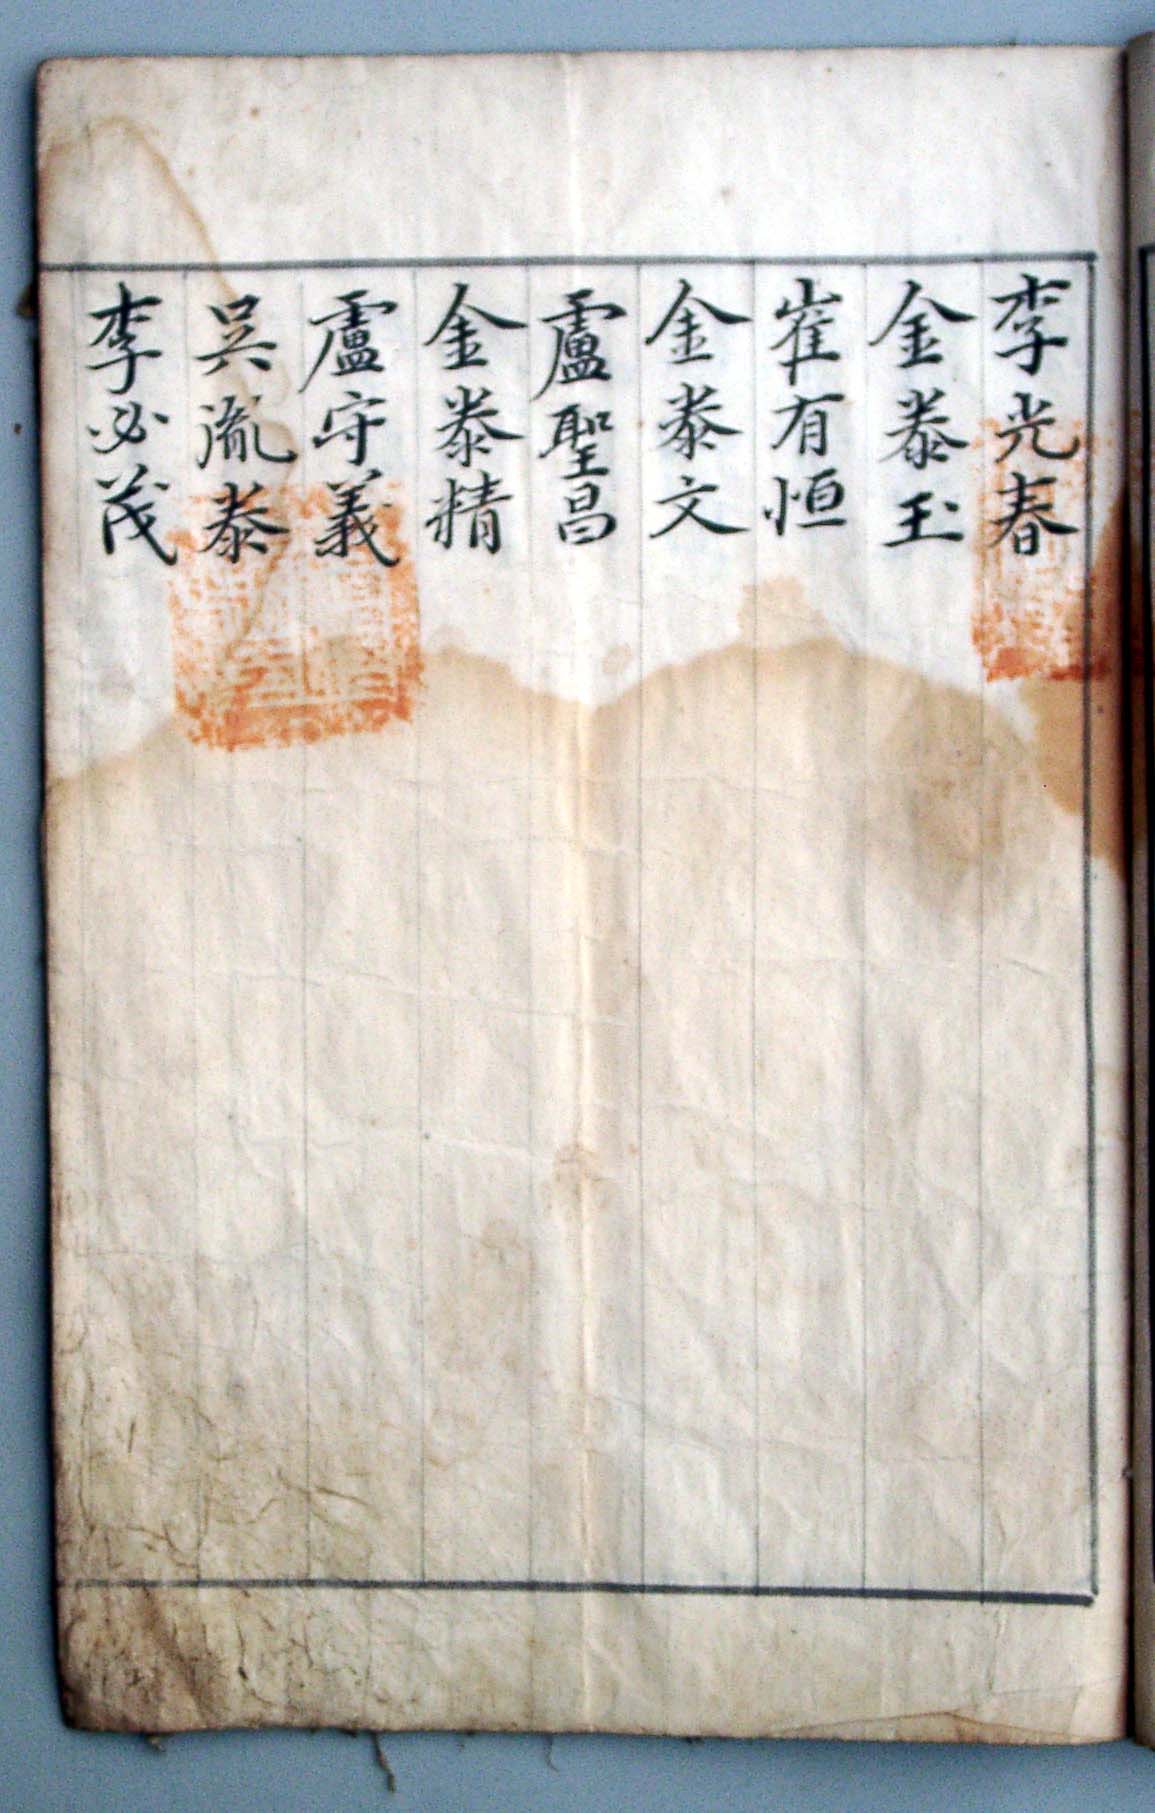 李光春
金泰玉
崔有恒
金泰文
盧聖昌
金泰精
盧守義
吳胤泰
李必茂